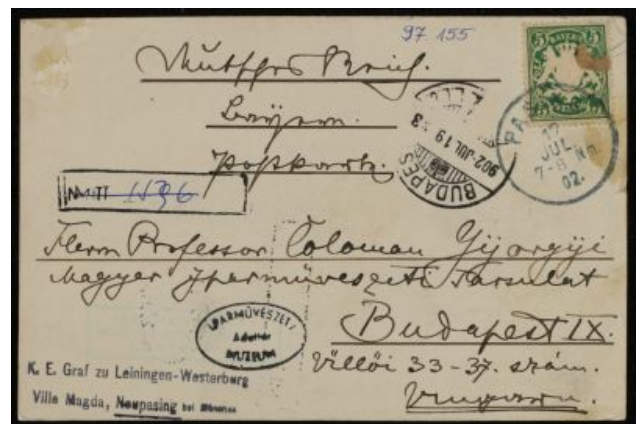 97.155
Deutsches Reich.
Bayern.
Postkarte.
BAYERN
5 5
PA
17
JUL
7-8 Nm
02.
BUDAPEST
902 JUL 19
1396
Herrn Professor Coloman Györgyi
Magyar Iparművészeti Tarsulat
Budapest IX.
Üllői 33-37. szám.
Ungarn.
IPARMŰVÉSZETI
Adattár
MUZEUM
K. E. Graf zu Leiningen-Westerburg
Villa Magda, Neupasing bei München